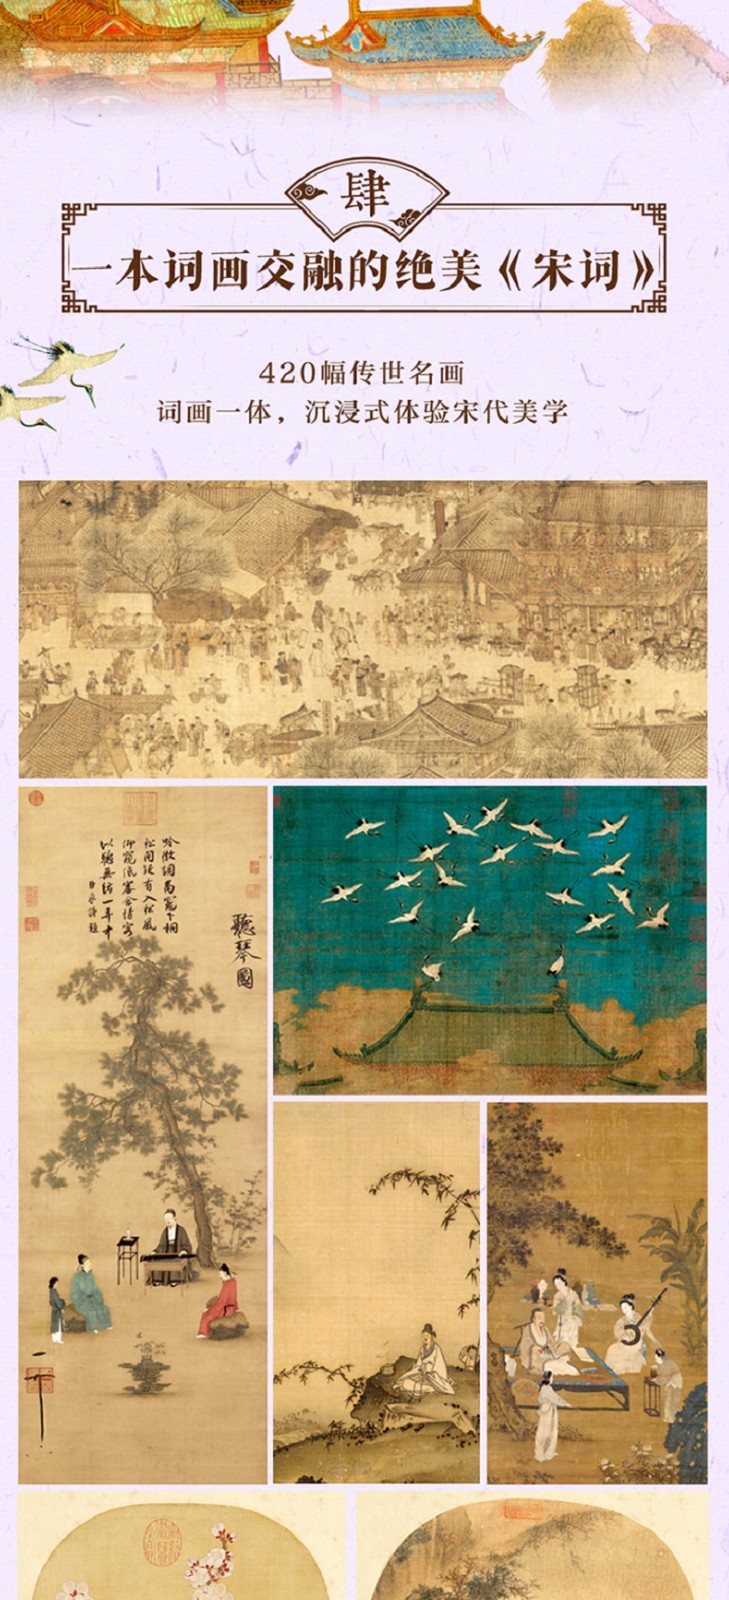 肆
一本词画交融的绝美《宋词》
420幅传世名画
词画一体，沉浸式体验宋代美学
聽琴圖
吟徵調商竈下桐
松間疑有入松風
仰窺低審含情客
以聽無絃一弄中